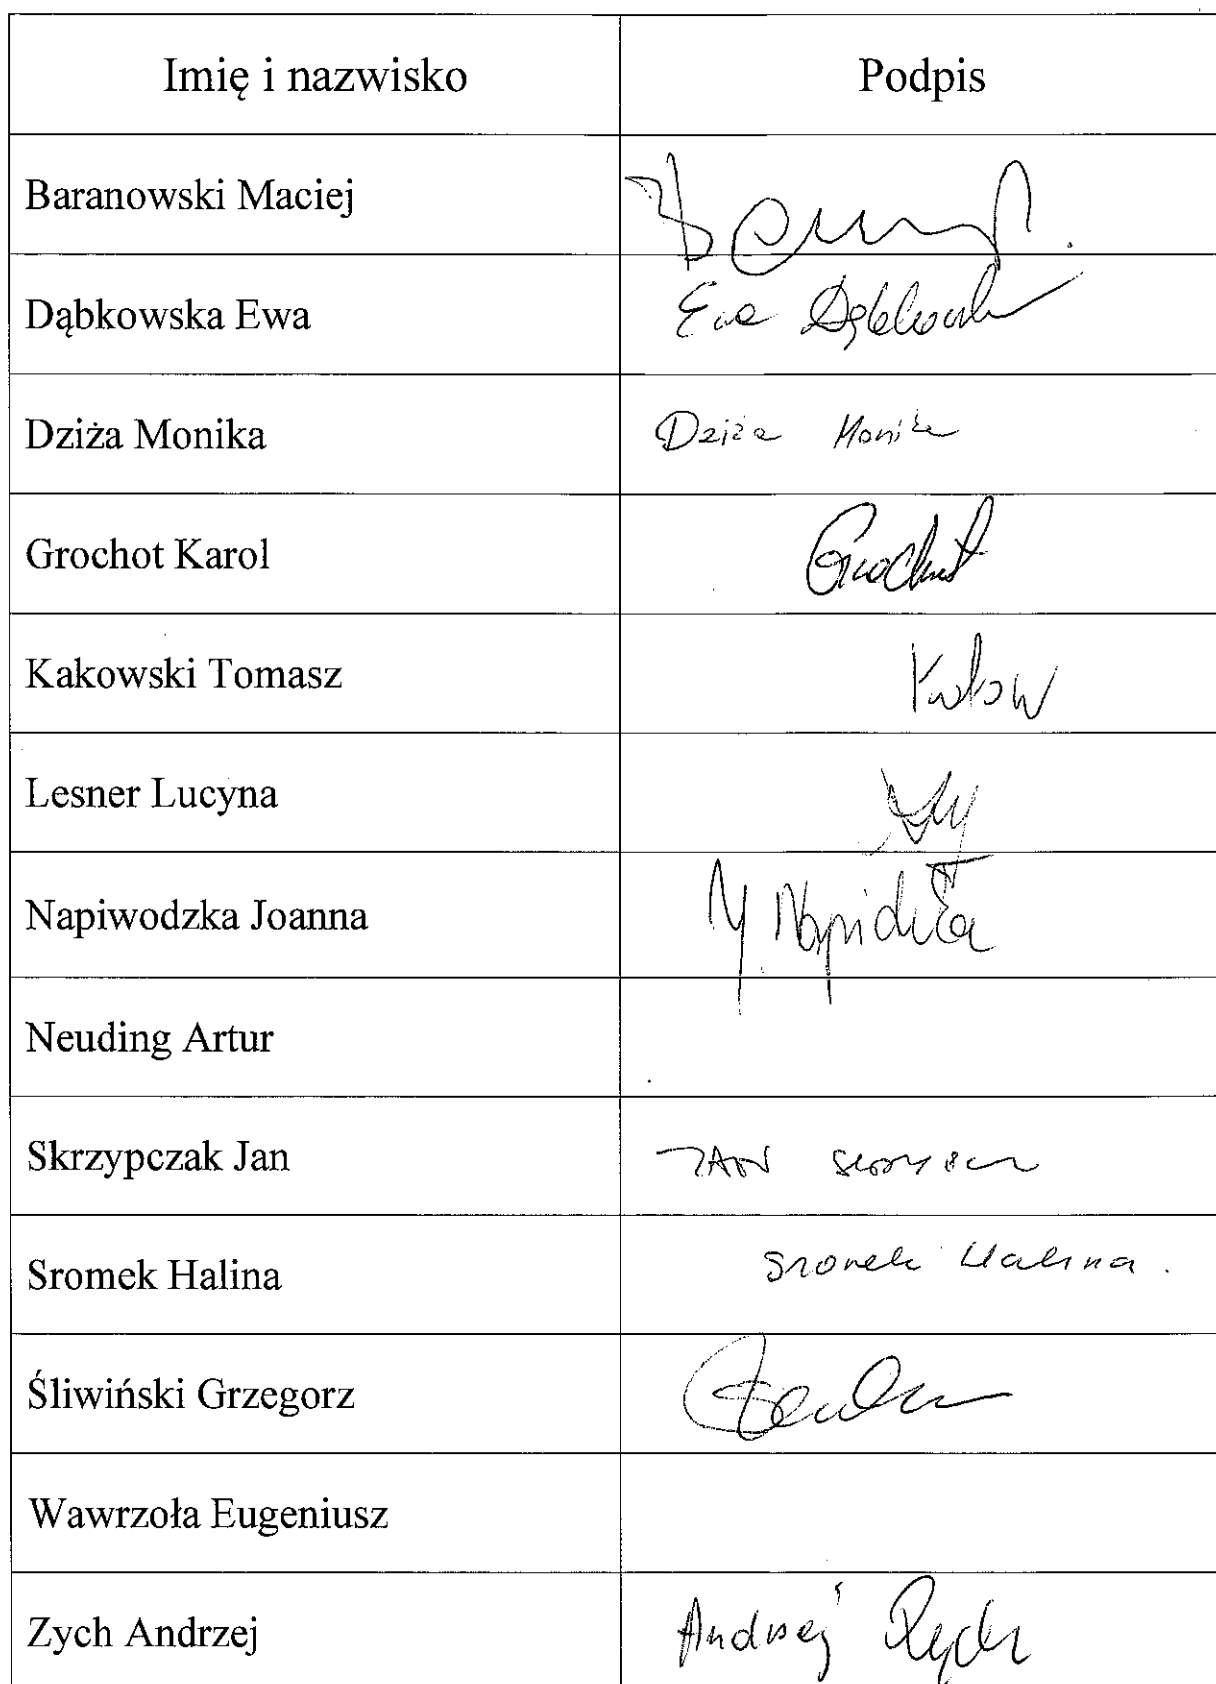 Imię i nazwisko Podpis
Baranowski Maciej
Dąbkowska Ewa Ewa Dąbkowska
Dziża Monika Dziża Monika
Grochot Karol Grochot
Kakowski Tomasz Kakow
Lesner Lucyna
Napiwodzka Joanna
Neuding Artur
Skrzypczak Jan JAN
Sromek Halina Sromek Halina.
Śliwiński Grzegorz
Wawrzoła Eugeniusz
Zych Andrzej Andrzej Zych